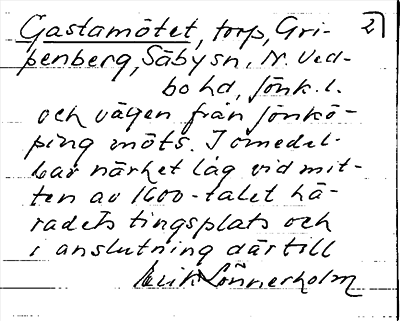 Gastamötet, torp, Gri- 2)
penberg, Säby sn, N. Ved-
bo hd, Jönk. l.
och vägen från Jönkö-
ping möts. I omedel-
bar närhet låg vid mit-
ten av 1600-talet hä-
radets tingsplats och
i anslutning därtill
Erik Lönnerholm